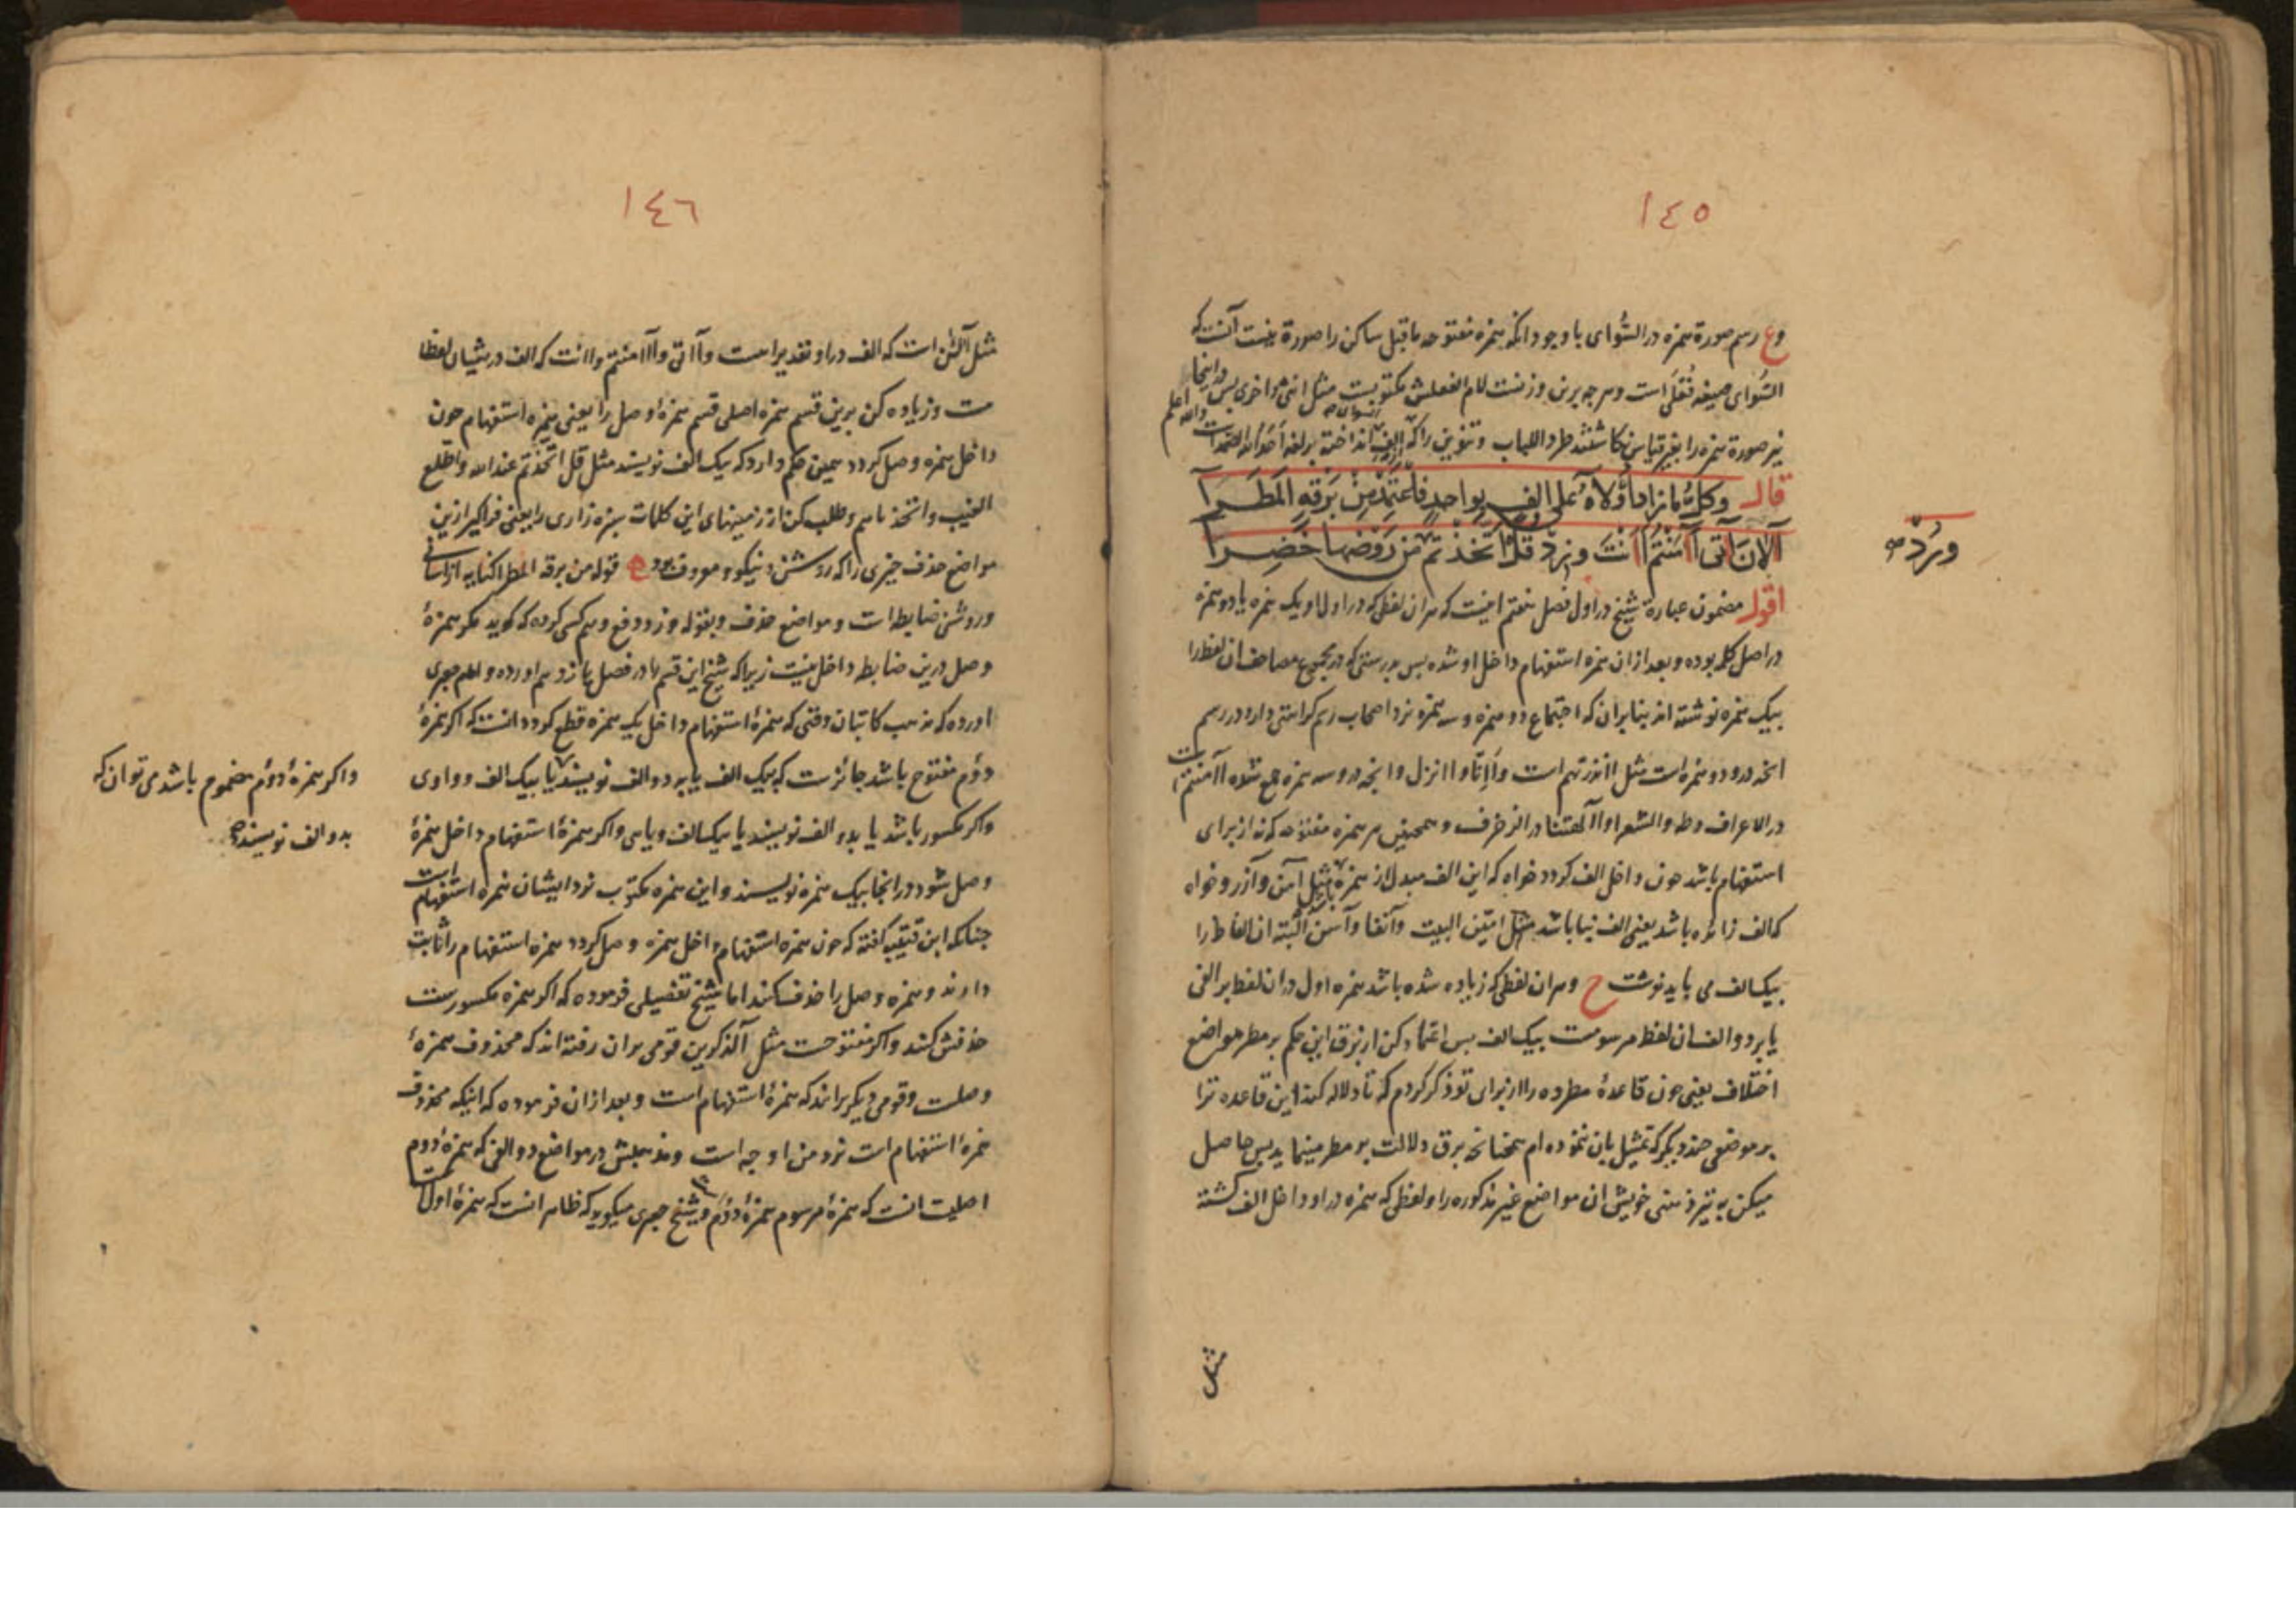 ١٤٥
وع رسم صورة همزه در السُّوای با وجود انکه همزه مفتوحه ماقبل ساکن را صورة نیست آنست که
السُّوای صیغه فُعْلَی است و هر چه برین وزنست لام الفعلش مکتوبست مثل انثی و اخری پس در اینجا
نیز صورة همزه را بغیر قیاس نکاشتند طردا للباب و تنوین را که الف انداخته والله اعلم
قال وکل ما زاد اولاه علی الف بواحد فاعتمد من برقه المطرا
آلان آتی أآمنتم أانت وزد قل اتخذتم من روضها خضرا
وزد صح
اقول مضمون عبارة شیخ در اول فصل هفتم اینست که هران لفظی که در اول او یک همزه یا دو همزه
در اصل کلمه بوده و بعد ازان همزه استفهام داخل او شده پس بدرستی که در جمیع مصاحف ان لفظ را
بیک همزه نوشته اند بنابران که اجتماع دو همزه و سه همزه نزد اصحاب رسم کراهتی دارد در رسم
انچه درو دو همزه است مثل اانذرتهم است و اإنا و اانزل و انچه درو سه همزه جمع شده اآمنتم است
در الاعراف و طه و الشعرا و اآلهتنا در الزخرف و همچنین هر همزه مفتوحه که نه از برای
استفهام باشد چون داخل الف کردد خواه که این الف مبدل از همزه باشد مثل آمن و آزر و خواه
که الف زائده باشد یعنی الف بنا باشد مثل امّین البیت و آنفا و آسن البته ان الفاظ را
بیک الف می باید نوشت ح و هران لفظی که زیاده شده باشد همزه اول دران لفظ بر الفی
یا بر دو الف ان لفظ مرسومست بیک الف پس اعتماد کن از برق این حکم بر مطر مواضع
اختلاف یعنی چون قاعدهٔ مطرده را از برای تو ذکر کردم که تا دلاله کند این قاعده ترا
بر موضعی چند دیکر که تمثیل بان ننموده ام همچنانچه برق دلالت بر مطر مینماید پس حاصل
میکن به تیز ذهنی خویش ان مواضع غیر مذکوره را و لفظی که همزه در او داخل الف کشته
مثل
١٤٦
مثل آلئن است که الف در او تقدیر است و آاتی و أآمنتم و اانت که الف در یشان لفظا
ست و زیاده کن برین قسم همزه اصلی قسم همزهٔ وصل را یعنی همزه استفهام چون
داخل همزه وصل کردد همین حکم دارد که یک الف نویسند مثل قل اتخذتم عند الله و اطلع
الغیب و اتخذناهم و طلب کن از زمینهای این کلمات سبزه زاری را یعنی فراکیر ازین
مواضع حذف چیزی را که روشن و نیکو و معروف بود قوله من برقه المطرا کنایه از اسانی
و روشنی ضابطه است و مواضع حذف و بقوله وزد دفع وهم کسی کرده که کوید مکر همزهٔ
وصل درین ضابطه داخل نیست زیرا که شیخ این قسم را در فصل یازدهم اورده و امام جعبری
اورده که مذهب کاتبان وقتی که همزهٔ استفهام داخل یک همزه قطع کردد انست که اکر همزهٔ
دوّم مفتوح باشد جائزست که بیک الف یا بر دو الف نویسند یا بیک الف و واوی
واکر همزهٔ دوّم مضموم باشد می توان که
بدو الف نویسند صح
واکر مکسور باشد یا بدو الف نویسند یا بیک الف و یایی واکر همزهٔ استفهام داخل همزهٔ
وصل شود در انجا بیک همزه نویسند و این همزه مکتوب نزد ایشان همزه استفهام است
چنانکه ابن قتیبه کفته که چون همزه استفهام داخل همزه وصل کردد همزه استفهام را ثابت
دارند و همزه وصل را حذف کنند اما شیخ تفصیلی فرموده که اکر همزه مکسورست
حذفش کنند واکر مفتوحست مثل آلذکرین قومی بران رفته اند که محذوف همزهٔ
وصلست و قومی دیکر برانند که همزهٔ استفهام است و بعد ازان فرموده که اینکه محذوف
همزهٔ استفهام است نزد من اوجه است و مذهبش در مواضع دو الفی که همزهٔ دوم
اصلیست انست که همزهٔ مرسوم همزهٔ دوّم و شیخ جعبری میکوید که ظاهر انست که همزهٔ اول است